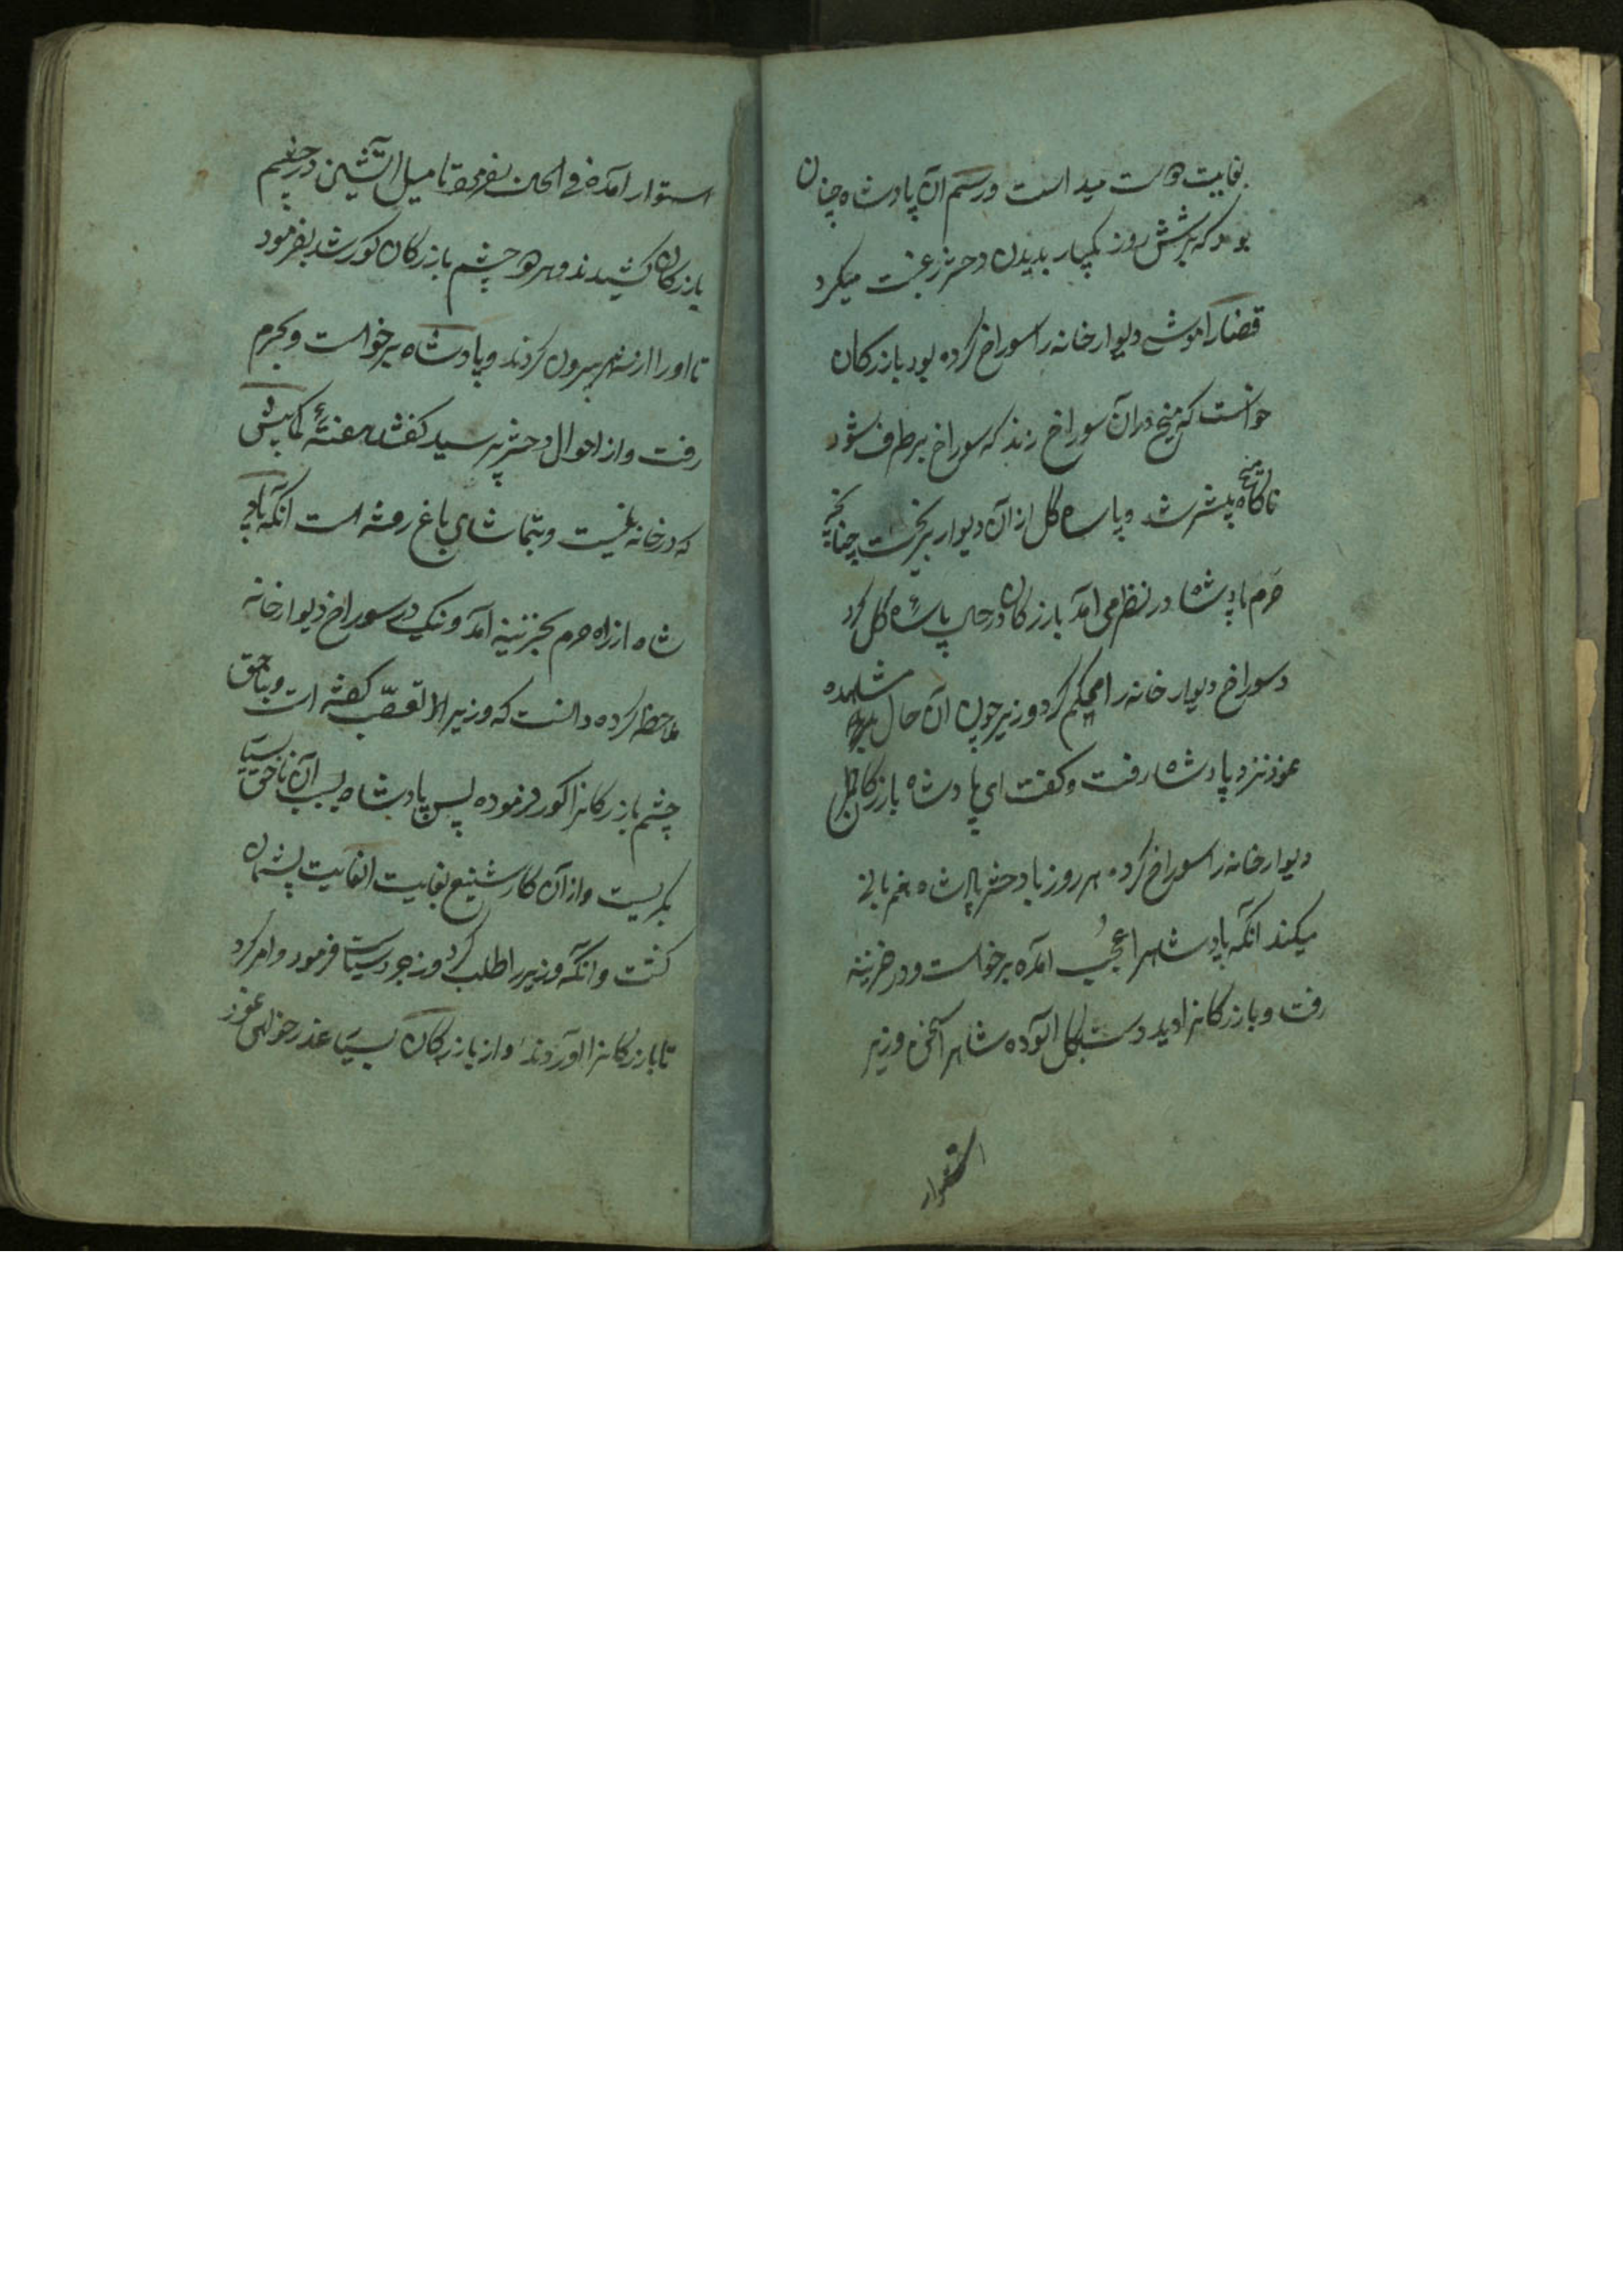 بغایت دوست میداست ورسم آن پادشاه چنان
بود که هر شش روز یکبار بدیدن دختر رغبت میکرد
قضارا موشی دیوار خانه را سوراخ کرده بود بازرکان
خواست که میخ در آن سوراخ زند که سوراخ برطرف شود
ناکاه میخ پیشتر شد و پاره کل از آن دیوار بریخت چنانچه
حرم پادشاه در نظر می آمد بازرکان در حال پاره کل کرد
و سوراخ دیوار خانه را محکم کرد وزیر چون آن حال مشاهده
نمود نزد پادشاه رفت و کفت ای پادشاه بازرکان
دیوار خانه را سوراخ کرده هر روز با دختر پادشاه
میکند انکه پادشاهرا عجب آمده برخواست و در خزینه
رفت و بازرکانرا دید دست بکل آلوده شاهرا سخن وزیر
استوار
استوار آمده فی الحال بفرمود تا میل آتشین در چشم
بازرکان کشیدند و هر دو چشم بازرکان کور شد بفرمود
تا او را از شهر بیرون کردند و پادشاه برخواست و بحرم
رفت و از احوال دختر پرسید کفتند
که در خانه نیست و بتماشای باغ رفته است انکه
شاه از راه حرم بخزینه آمد و نیک در سوراخ دیوار خانه
ملاحظه کرده دانست که وزیر از تعصب کفته است و بناحق
چشم بازرکانرا کور فرموده پس پادشاه بسبب آن ناحق بسیار
بکریست و از آن کار شنیع بغایت الغایت پشیمان
کشت و انکه وزیر را طلب کرد و زجر و سیاست فرمود و امر کرد
تا بازرکانرا آوردند و از بازرکان بسیار عذر خواهی نمود